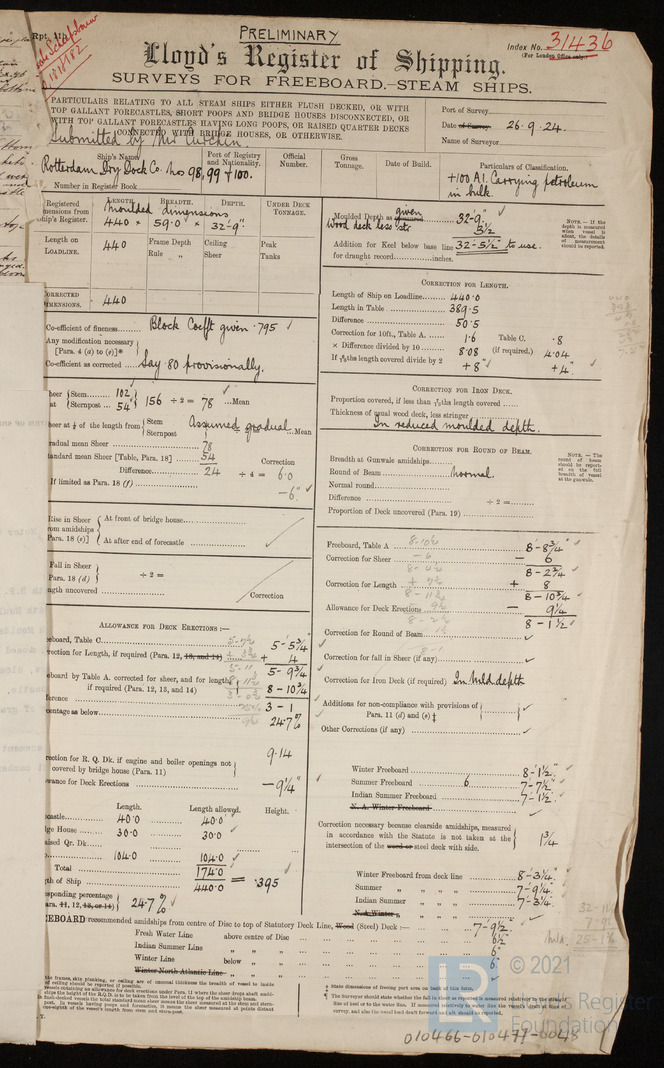 PRELIMINARY
Rpt.
Lloyd's Register of Shipping.
Index No. 31436
(For London Office only.)
SURVEYS FOR FREEBOARD.—STEAM SHIPS.
PARTICULARS RELATING TO ALL STEAM SHIPS EITHER FLUSH DECKED, OR WITH
TOP GALLANT FORECASTLES, SHORT POOPS AND BRIDGE HOUSES DISCONNECTED, OR
WITH TOP GALLANT FORECASTLES HAVING LONG POOPS, OR RAISED QUARTER DECKS
CONNECTED WITH BRIDGE HOUSES, OR OTHERWISE.
Submitted by
Port of Survey
Date of Survey 26.9.24.
Name of Surveyor
Ship's Name
Port of Registry and Nationality.
Official Number.
Gross Tonnage.
Date of Build.
Particulars of Classification.
Rotterdam Dry Dock Co. Nos 98, 99 & 100.
+100 A1. Carrying petroleum
in bulk.
Number in Register Book
Registered Dimensions from Ship's Register.
LENGTH. BREADTH. DEPTH. UNDER DECK TONNAGE.
Moulded dimensions
440 × 59.0 × 32-9".
Length on LOADLINE. 440
Frame Depth Ceiling Peak
Rule " Sheer Tanks
CORRECTED DIMENSIONS. 440
Co-efficient of fineness Block Coefft given .795
Any modification necessary
[Para. 4 (a) to (e)]*
Co-efficient as corrected Say .80 provisionally.
Sheer at Stem 102
Sternpost 54
156 ÷ 2 = 78 Mean
Sheer at ⅛ of the length from Stem
Sternpost Assumed gradual Mean
Gradual mean Sheer 78
Standard mean Sheer [Table, Para. 18] 54
Correction
Difference 24 ÷ 4 = 6.0
If limited as Para. 18 (f) —6"
Rise in Sheer from amidships Para. 18 (e)]
At front of bridge house
At after end of forecastle
Fall in Sheer
Para. 18 (d)
÷ 2 =
Length uncovered
Correction
ALLOWANCE FOR DECK ERECTIONS:—
Freeboard, Table C 5-5¾
Correction for Length, if required (Para. 12, 13, and 14) + 4
5-9¾
Freeboard by Table A. corrected for sheer, and for length, if required (Para. 12, 13, and 14) 8-10¾
Difference 3-1
Percentage as below 24.7%
9.14
Correction for R. Q. Dk. if engine and boiler openings not covered by bridge house (Para. 11)
Allowance for Deck Erections —9¼"
Length. Length allowed. Height.
Forecastle 40.0 40.0
Bridge House 30.0 30.0
Raised Qr. Dk.
104.0 104.0
Total 174.0
Length of Ship 440.0 = .395
Corresponding percentage
(Para. 11, 12, 13, or 14) 24.7%
Moulded Depth as given 32-9"
Wood deck less str 3½
Addition for Keel below base line 32-5½" to use.
for draught record inches.
NOTE.—If the depth is measured when vessel is afloat, the details of measurement should be reported.
CORRECTION FOR LENGTH.
Length of Ship on Loadline 440.0
Length in Table 389.5
Difference 50.5
Correction for 10ft., Table A. 1.6 Table C. .8
× Difference divided by 10 8.08 (if required.) 4.04
If ⁶⁄₁₀ths length covered divide by 2 +8" +4"
CORRECTION FOR IRON DECK.
Proportion covered, if less than ⁷⁄₁₀ths length covered
Thickness of usual wood deck, less stringer
In reduced moulded depth.
CORRECTION FOR ROUND OF BEAM.
Breadth at Gunwale amidships
Round of Beam Normal.
Normal round
Difference ÷ 2 =
Proportion of Deck uncovered (Para. 19)
NOTE.—The round of beam should be reported on the full breadth of vessel at the gunwale.
Freeboard, Table A 8-8¾"
Correction for Sheer — 6
8-2¾
Correction for Length + 8
8-10¾
Allowance for Deck Erections — 9¼
8-1½"
Correction for Round of Beam
Correction for fall in Sheer (if any)
Correction for Iron Deck (if required) In Mld. depth
Additions for non-compliance with provisions of
Para. 11 (d) and (e) ‡
Other Corrections (if any)
Winter Freeboard 8-1½"
Summer Freeboard 6 7-7½"
Indian Summer Freeboard 7-1½"
N. A. Winter Freeboard
Correction necessary because clearside amidships, measured
in accordance with the Statute is not taken at the
intersection of the wood or steel deck with side. 1¾
Winter Freeboard from deck line 8-3¼"
Summer " " " " 7-9¼"
Indian Summer " " " 7-3¼"
N.A. Winter " " "
FREEBOARD recommended amidships from centre of Disc to top of Statutory Deck Line, Wood (Steel) Deck:— 7-9½"
Fresh Water Line above centre of Disc 6½"
Indian Summer Line " " 6"
Winter Line below " " 6"
Winter North Atlantic Line " "
‡ State dimensions of freeing port area on back of this form.
© 2021
Lloyd's Register
Foundation
010466-010477-0048